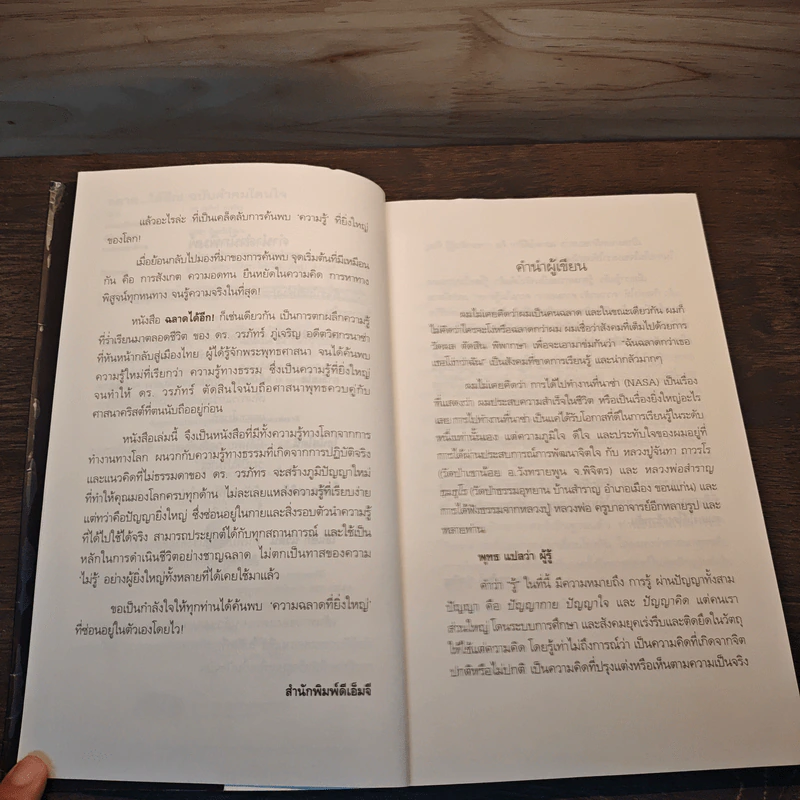 แล้วอะไรล่ะ ที่เป็นเคล็ดลับการค้นพบ ‘ความรู้’ ที่ยิ่งใหญ่
ของโลก!
เมื่อย้อนกลับไปมองที่มาของการค้นพบ จุดเริ่มต้นที่มีเหมือน
กัน คือ การสังเกต ความอดทน ยืนหยัดในความคิด การหาทาง
พิสูจน์ทุกหนทาง จนรู้ความจริงในที่สุด!
หนังสือ ฉลาดได้อีก! ก็เช่นเดียวกัน เป็นการตกผลึกความรู้
ที่ร่ำเรียนมาตลอดชีวิต ของ ดร. วรภัทร์ ภู่เจริญ อดีตวิศวกรนาซ่า
ที่หันหน้ากลับสู่เมืองไทย ผู้ได้รู้จักพระพุทธศาสนา จนได้ค้นพบ
ความรู้ใหม่ที่เรียกว่า ความรู้ทางธรรม ซึ่งเป็นความรู้ที่ยิ่งใหญ่
จนทำให้ ดร. วรภัทร์ ตัดสินใจนับถือศาสนาพุทธควบคู่กับ
ศาสนาคริสต์ที่ตนนับถืออยู่ก่อน
หนังสือเล่มนี้ จึงเป็นหนังสือที่มีทั้งความรู้ทางโลกจากการ
ทำงานทางโลก ผนวกกับความรู้ทางธรรมที่เกิดจากการปฏิบัติจริง
และแนวคิดที่ไม่ธรรมดาของ ดร. วรภัทร์ จะสร้างภูมิปัญญาใหม่
ที่ทำให้คุณมองโลกครบทุกด้าน ไม่ละเลยแหล่งความรู้ที่เรียบง่าย
แต่ทว่าคือปัญญายิ่งใหญ่ ซึ่งซ่อนอยู่ในกายและสิ่งรอบตัวนำความรู้
ที่ได้ไปใช้ได้จริง สามารถประยุกต์ได้กับทุกสถานการณ์ และใช้เป็น
หลักในการดำเนินชีวิตอย่างชาญฉลาด ไม่ตกเป็นทาสของความ
‘ไม่รู้’ อย่างผู้ยิ่งใหญ่ทั้งหลายที่ได้เคยใช้มาแล้ว
ขอเป็นกำลังใจให้ทุกท่านได้ค้นพบ ‘ความฉลาดที่ยิ่งใหญ่’
ที่ซ่อนอยู่ในตัวเองโดยไว!
สำนักพิมพ์ดีเอ็มจี
คำนำผู้เขียน
ผมไม่เคยคิดว่าผมเป็นคนฉลาด และในขณะเดียวกัน ผมก็
ไม่คิดว่าใครจะโง่หรือฉลาดกว่าผม ผมเชื่อว่าสังคมที่เต็มไปด้วยการ
วัดผล ตัดสิน พิพากษา เพื่อจะเอามาข่มกันว่า “ฉันฉลาดกว่าเธอ
เธอโง่กว่าฉัน” เป็นสังคมที่ขาดการเรียนรู้ และน่ากลัวมากๆ
ผมไม่เคยคิดว่า การได้ไปทำงานที่นาซ่า (NASA) เป็นเรื่อง
ที่แสดงว่า ผมประสบความสำเร็จในชีวิต หรือเป็นเรื่องยิ่งใหญ่อะไร
เลย การไปทำงานที่นาซ่า เป็นแค่ได้รับโอกาสที่ดีในการเรียนรู้ในระดับ
หนึ่งเท่านั้นเอง แต่ความภูมิใจ ดีใจ และประทับใจของผมอยู่ที่
การได้ผ่านประสบการณ์การพัฒนาจิตใจ กับ หลวงปู่จันทา ถาวรโร
(วัดป่าเขาน้อย อ.วังทรายพูน จ.พิจิตร) และ หลวงพ่อสำราญ
ธมฺมธุโร (วัดป่าธรรมอุทยาน บ้านสำราญ อำเภอเมือง ขอนแก่น) และ
การได้ฟังธรรมจากหลวงปู่ หลวงพ่อ ครูบาอาจารย์อีกหลายรูป และ
หลายท่าน
พุทธ แปลว่า ผู้รู้
คำว่า “รู้” ในที่นี้ มีความหมายถึง การรู้ ผ่านปัญญาทั้งสาม
ปัญญา คือ ปัญญากาย ปัญญาใจ และ ปัญญาคิด แต่คนเรา
ส่วนใหญ่ โดนระบบการศึกษา และสังคมยุคเร่งรีบและติดยึดในวัตถุ
ให้ใช้แต่ความคิด โดยรู้เท่าไม่ถึงการณ์ว่า เป็นความคิดที่เกิดจากจิต
ปกติหรือไม่ปกติ เป็นความคิดที่ปรุงแต่งหรือเห็นตามความเป็นจริง